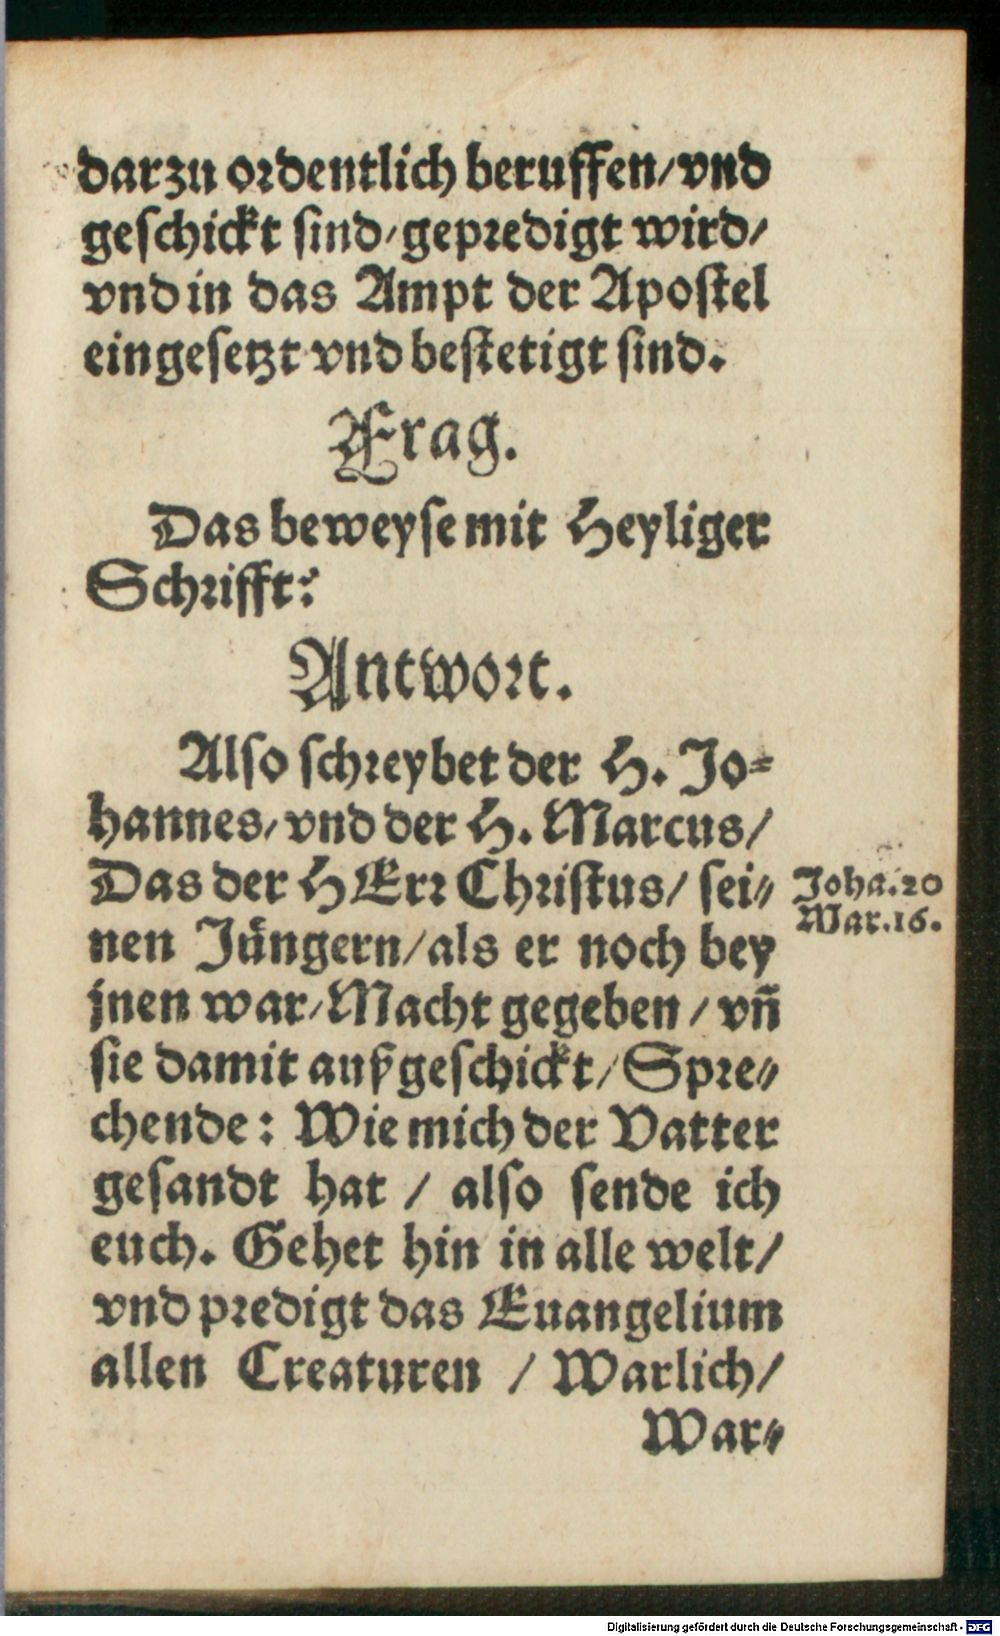 darzu ordentlich beruffen/ vnd
geschickt sind/ gepredigt wird/
vnd in das Ampt der Apostel
eingesetzt vnd bestetigt sind.
Frag.
Das beweyse mit Heyliger
Schrifft?
Antwort.
Also schreybet der H. Jo⸗
hannes/ vnd der H. Marcus/
Das der HErr Christus/ sei⸗
nen Jüngern/ als er noch bey
jnen war/ Macht gegeben/ vñ
sie damit außgeschickt/ Spre⸗
chende: Wie mich der Vatter
gesandt hat / also sende ich
euch. Gehet hin in alle welt/
vnd predigt das Euangelium
allen Creaturen / Warlich/
War⸗
Joha.20
Mar.16.
Digitalisierung gefördert durch die Deutsche Forschungsgemeinschaft - DFG